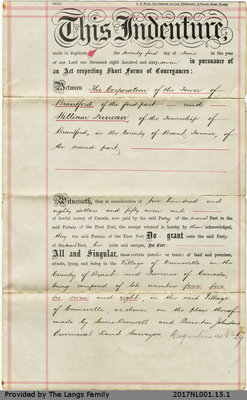 This Indenture,
made in duplicate the twenty first day of June in the year
of our Lord one thousand eight hundred and sixty-seven in pursuance of
an Act respecting Short Forms of Conveyances:
Between The Corporation of the Town of
Brantford of the first part — and
William Duncan, of the Township of
Brantford, in the County of Brant, Farmer, of
the second part,
Witnesseth, that in consideration of two hundred and
eighty dollars and fifty seven cents
of lawful money of Canada, now paid by the said Party of the second Part to the
said Parties of the First Part, the receipt whereof is hereby by them acknowledged,
they the said Parties of the First Part Do grant unto the said Party
of the second Part, his heirs and assigns, for Ever:
All and Singular, those certain parcels or tracts of land and premises,
situate, lying, and being in the Village of Cainsville in the
County of Brant and Province of Canada,
being composed of lots numbers four five
six seven and eight, in the said Village
of Cainsville, as shown on the plan thereof
made by Lewis Burwell and Quintin Johnstone
Provincial Land Surveyors,
Provided by The Langs Family
2017NL001.15.1